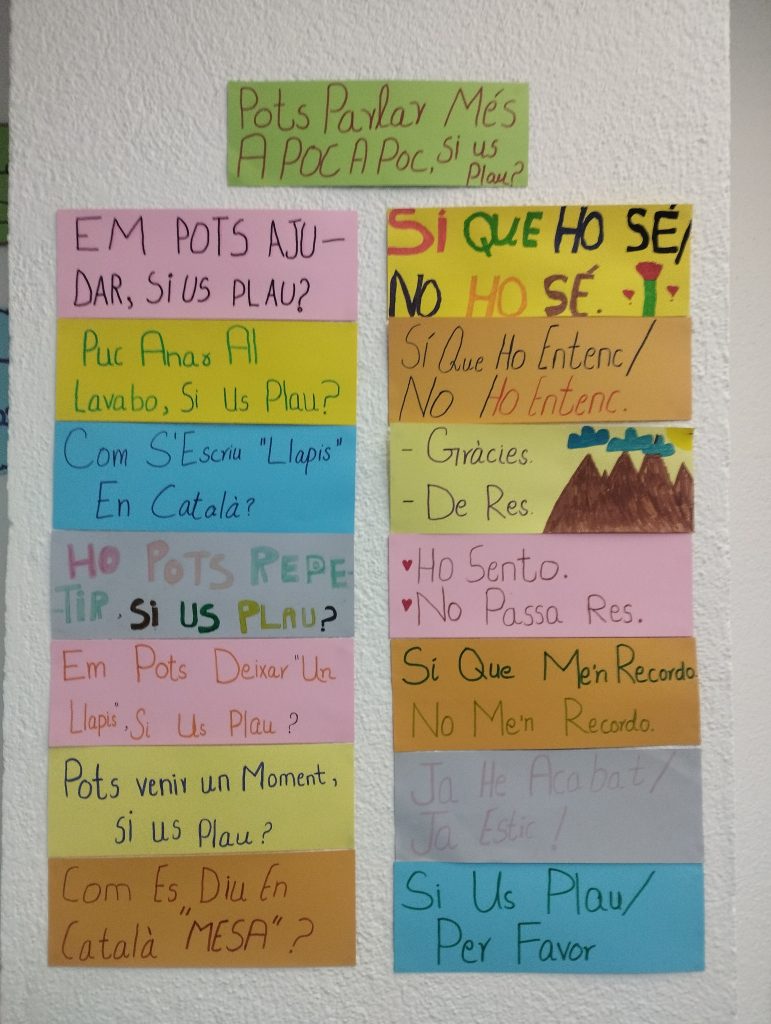 Pots Parlar Més
A POC A Poc, Si us
Plau?
EM POTS AJU-
DAR, Si US PLAU?
Puc Anar Al
Lavabo, Si Us Plau?
Com S'Escriu "Llapis"
En Català?
HO POTS REPE-
-TiR, Si US PLAU?
Em Pots Deixar "Un
Llapis", Si Us Plau ?
Pots venir un Moment,
Si us Plau ?
Com Es Diu En
Català "MESA" ?
Sí QUE HO SÉ/
NO HO SÉ.
Sí Que Ho Entenc/
No Ho Entenc.
- Gràcies.
- De Res.
Ho Sento.
No Passa Res.
Sí Que Me'n Recordo
No Me'n Recordo.
Ja He Acabat/
Ja Estic !
Si Us Plau/
Per Favor